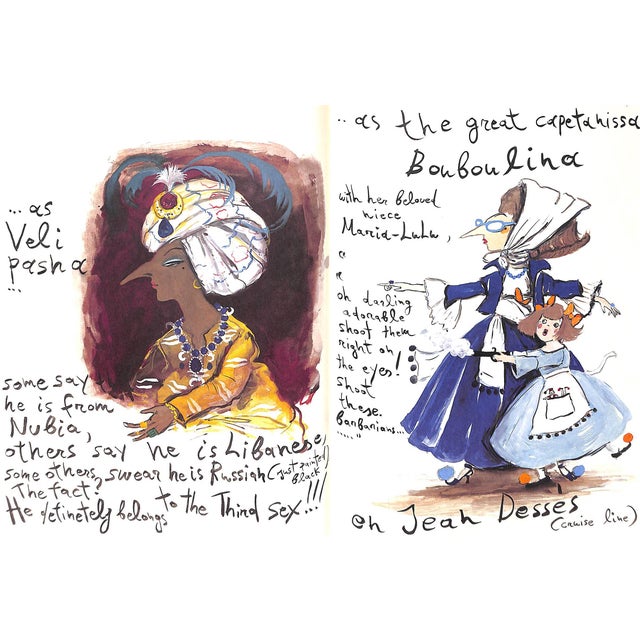 ...as
Veli
pasha
...
some say
he is from
Nubia,
others say he is Libanese,
some others, swear he is Russian (just painted
black)
The fact?
He definetely belongs to the Third sex...!!!
.. as the great capetanissa
Bouboulina
with her beloved
niece
Maria-Lulu,
"
"
oh darling
adorable
shoot them
right on
the eyes!
shoot
these.
Barbarians...
....."
en Jean Dessès
(cruise line)